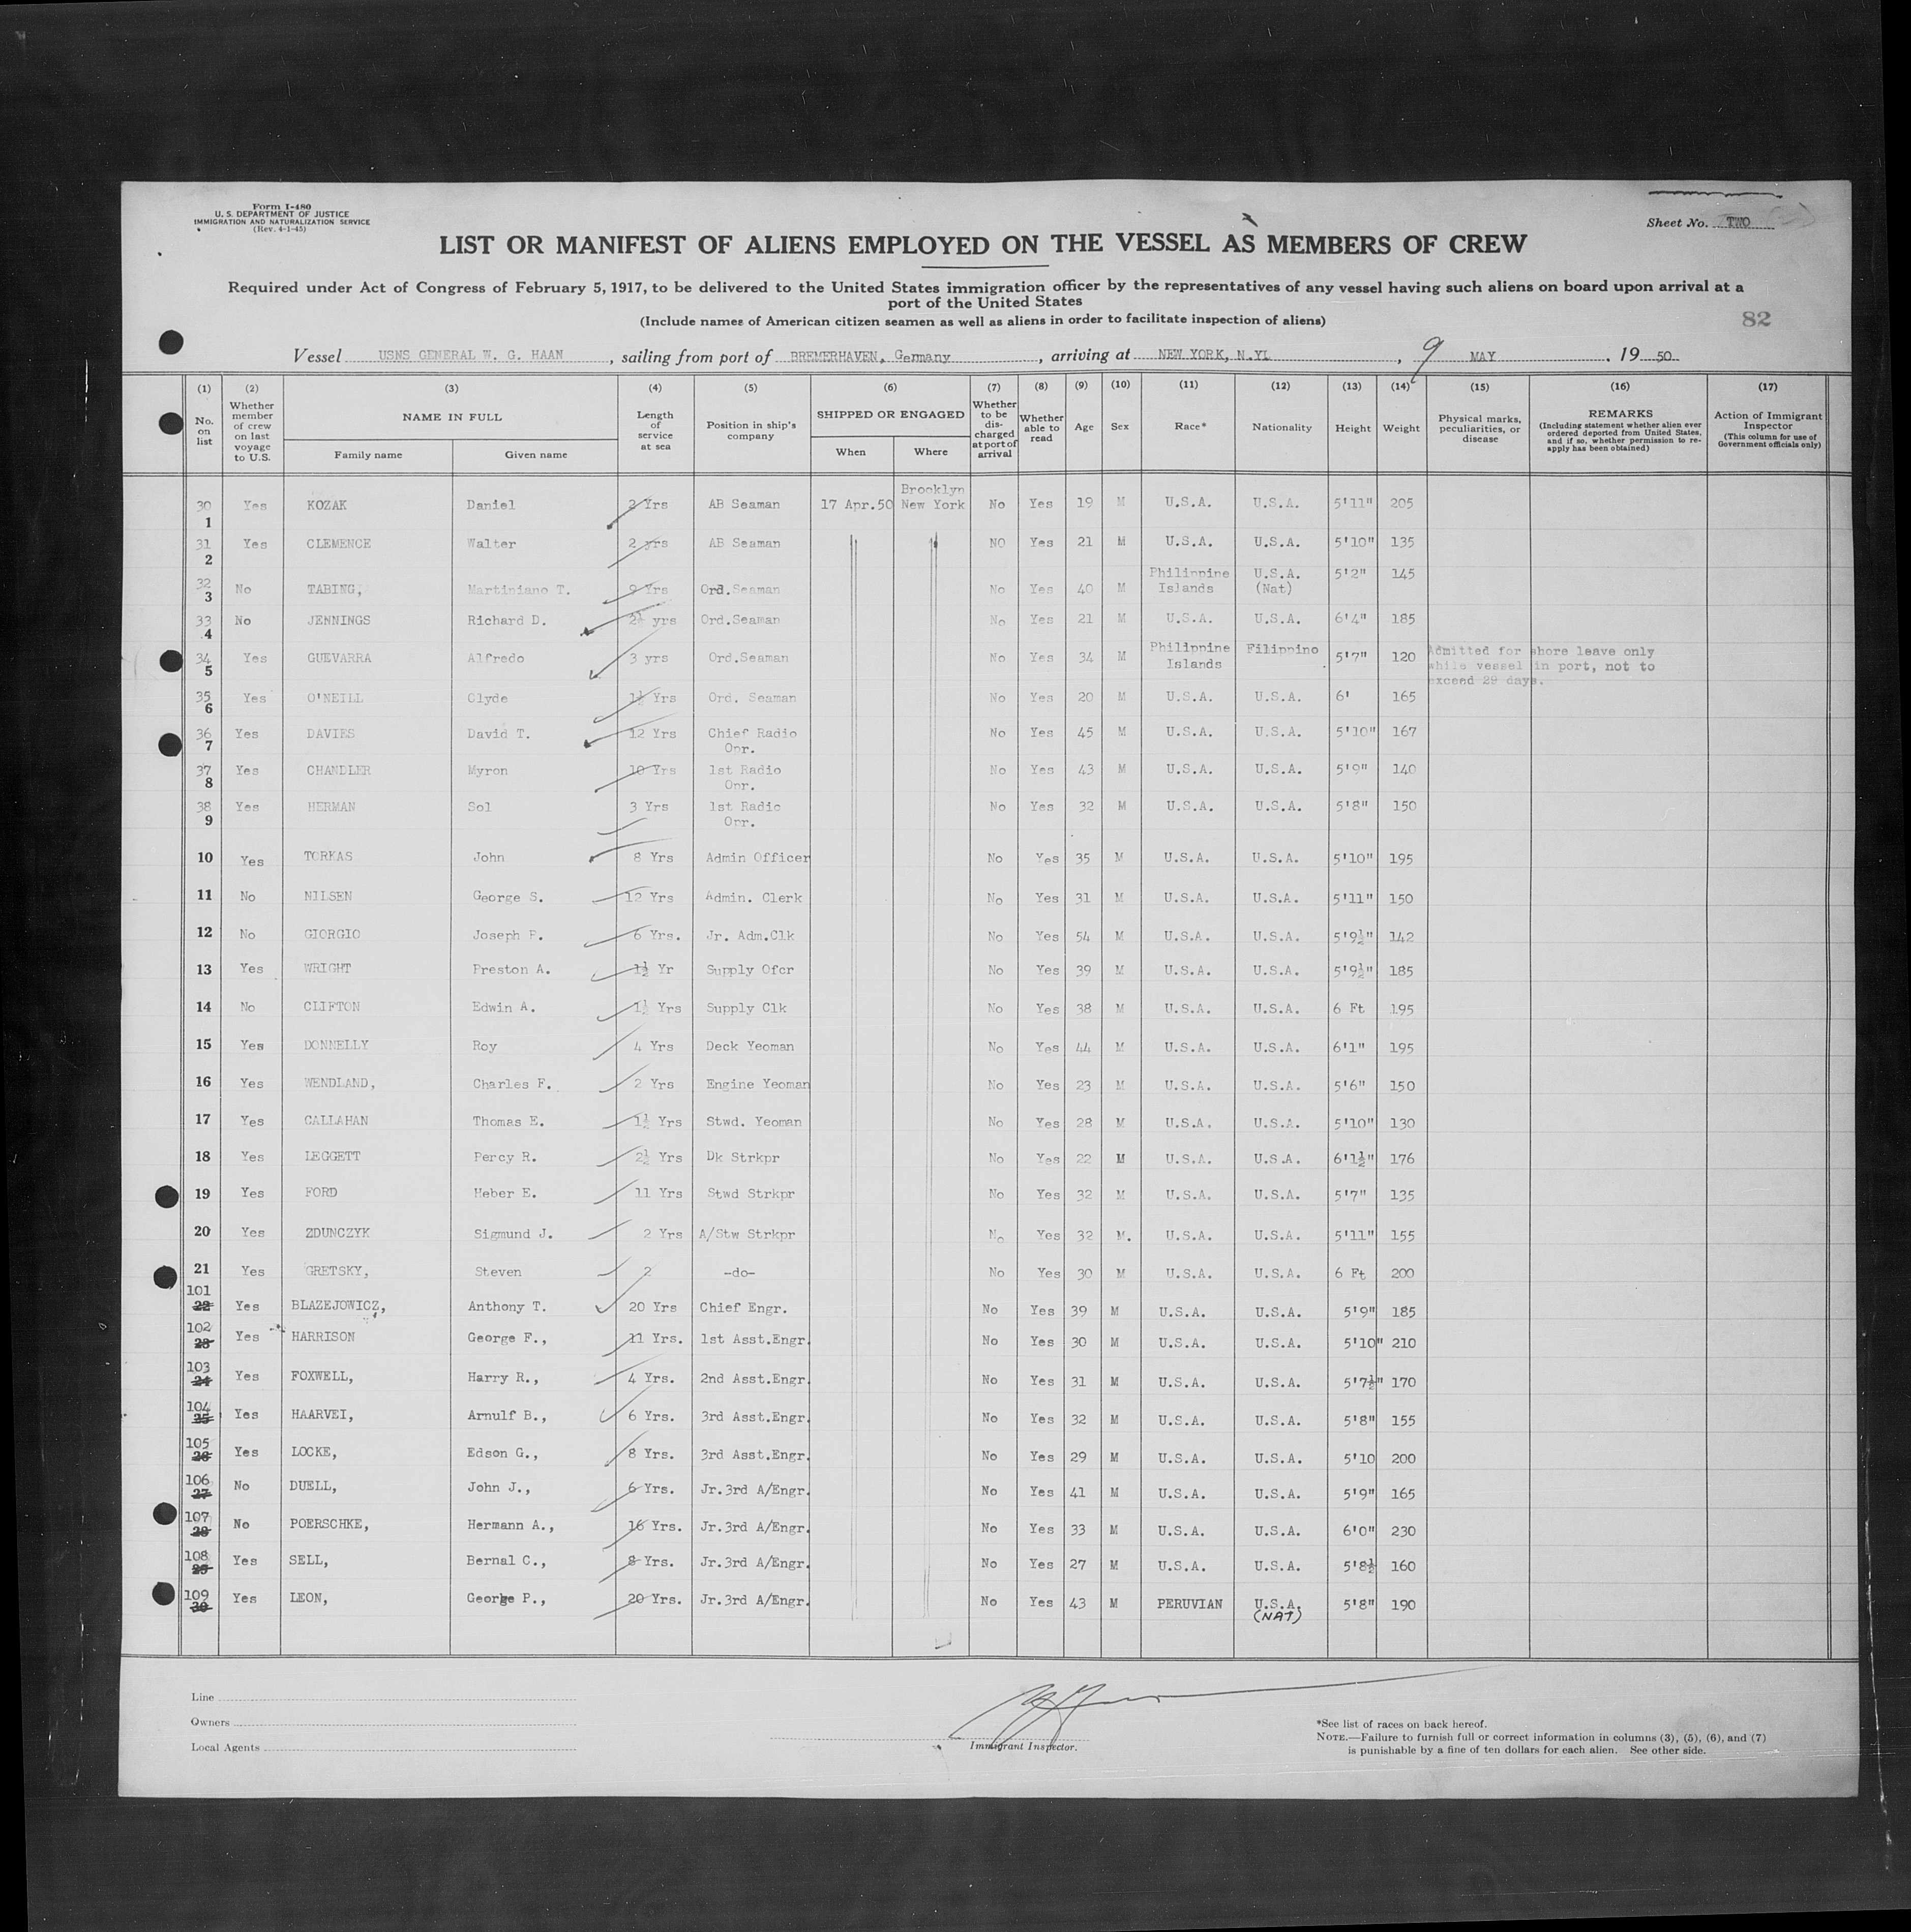 Form I-480
U. S. DEPARTMENT OF JUSTICE
IMMIGRATION AND NATURALIZATION SERVICE
(Rev. 4-1-45)
Sheet No. TWO
LIST OR MANIFEST OF ALIENS EMPLOYED ON THE VESSEL AS MEMBERS OF CREW
Required under Act of Congress of February 5, 1917, to be delivered to the United States immigration officer by the representatives of any vessel having such aliens on board upon arrival at a
port of the United States
(Include names of American citizen seamen as well as aliens in order to facilitate inspection of aliens)
82
Vessel USNS GENERAL W. G. HAAN, sailing from port of BREMERHAVEN, Germany, arriving at NEW YORK, N.Y., 9 MAY, 1950
(1) (2) (3) (4) (5) (6) (7) (8) (9) (10) (11) (12) (13) (14) (15) (16) (17)
No. on list
Whether member of crew on last voyage to U.S.
NAME IN FULL
Family name
Given name
Length of service at sea
Position in ship's company
SHIPPED OR ENGAGED
When
Where
Whether to be discharged at port of arrival
Whether able to read
Age
Sex
Race*
Nationality
Height
Weight
Physical marks, peculiarities, or disease
REMARKS
(Including statement whether alien ever ordered deported from United States, and if so, whether permission to re-apply has been obtained)
Action of Immigrant Inspector
(This column for use of Government officials only)
30 1 Yes KOZAK Daniel 2 Yrs AB Seaman 17 Apr.50 Brooklyn New York No Yes 19 M U.S.A. U.S.A. 5'11" 205
31 2 Yes CLEMENCE Walter 2 yrs AB Seaman NO Yes 21 M U.S.A. U.S.A. 5'10" 135
32 3 No TABING, Martiniano T. 9 Yrs Ord.Seaman No Yes 40 M Philippine Islands U.S.A. (Nat) 5'2" 145
33 4 No JENNINGS Richard D. 2½ yrs Ord.Seaman No Yes 21 M U.S.A. U.S.A. 6'4" 185
34 5 Yes GUEVARRA Alfredo 3 yrs Ord.Seaman No Yes 34 M Philippine Islands Filippino 5'7" 120 Admitted for shore leave only while vessel in port, not to exceed 29 days.
35 6 Yes O'NEILL Clyde 1½ Yrs Ord. Seaman No Yes 20 M U.S.A. U.S.A. 6' 165
36 7 Yes DAVIES David T. 12 Yrs Chief Radio Opr. No Yes 45 M U.S.A. U.S.A. 5'10" 167
37 8 Yes CHANDLER Myron 10 Yrs 1st Radio Opr. No Yes 43 M U.S.A. U.S.A. 5'9" 140
38 9 Yes HERMAN Sol 3 Yrs 1st Radio Opr. No Yes 32 M U.S.A. U.S.A. 5'8" 150
10 Yes TORKAS John 8 Yrs Admin Officer No Yes 35 M U.S.A. U.S.A. 5'10" 195
11 No NILSEN George S. 12 Yrs Admin. Clerk No Yes 31 M U.S.A. U.S.A. 5'11" 150
12 No GIORGIO Joseph P. 6 Yrs. Jr. Adm.Clk No Yes 54 M U.S.A. U.S.A. 5'9½" 142
13 Yes WRIGHT Preston A. 1½ Yr Supply Ofcr No Yes 39 M U.S.A. U.S.A. 5'9½" 185
14 No CLIFTON Edwin A. 1½ Yrs Supply Clk No Yes 38 M U.S.A. U.S.A. 6 Ft 195
15 Yes DONNELLY Roy 4 Yrs Deck Yeoman No Yes 44 M U.S.A. U.S.A. 6'1" 195
16 Yes WENDLAND, Charles F. 2 Yrs Engine Yeoman No Yes 23 M U.S.A. U.S.A. 5'6" 150
17 Yes CALLAHAN Thomas E. 1½ Yrs Stwd. Yeoman No Yes 28 M U.S.A. U.S.A. 5'10" 130
18 Yes LEGGETT Percy R. 2½ Yrs Dk Strkpr No Yes 22 M U.S.A. U.S.A. 6'1½" 176
19 Yes FORD Heber E. 11 Yrs Stwd Strkpr No Yes 32 M U.S.A. U.S.A. 5'7" 135
20 Yes ZDUNCZYK Sigmund J. 2 Yrs A/Stw Strkpr No Yes 32 M. U.S.A. U.S.A. 5'11" 155
21 Yes GRETSKY, Steven 2 -do- No Yes 30 M U.S.A. U.S.A. 6 Ft 200
101 22 Yes BLAZEJOWICZ, Anthony T. 20 Yrs Chief Engr. No Yes 39 M U.S.A. U.S.A. 5'9" 185
102 23 Yes HARRISON George F., 11 Yrs. 1st Asst.Engr. No Yes 30 M U.S.A. U.S.A. 5'10" 210
103 24 Yes FOXWELL, Harry R., 4 Yrs. 2nd Asst.Engr. No Yes 31 M U.S.A. U.S.A. 5'7½" 170
104 25 Yes HAARVEI, Arnulf B., 6 Yrs. 3rd Asst.Engr. No Yes 32 M U.S.A. U.S.A. 5'8" 155
105 26 Yes LOCKE, Edson G., 8 Yrs. 3rd Asst.Engr. No Yes 29 M U.S.A. U.S.A. 5'10 200
106 27 No DUELL, John J., 6 Yrs. Jr.3rd A/Engr. No Yes 41 M U.S.A. U.S.A. 5'9" 165
107 28 No POERSCHKE, Hermann A., 16 Yrs. Jr.3rd A/Engr. No Yes 33 M U.S.A. U.S.A. 6'0" 230
108 29 Yes SELL, Bernal C., 8 Yrs. Jr.3rd A/Engr. No Yes 27 M U.S.A. U.S.A. 5'8½ 160
109 30 Yes LEON, George P., 20 Yrs. Jr.3rd A/Engr. No Yes 43 M PERUVIAN U.S.A. (NAT) 5'8" 190
Line
Owners
Local Agents
Immigrant Inspector.
*See list of races on back hereof.
NOTE.—Failure to furnish full or correct information in columns (3), (5), (6), and (7)
is punishable by a fine of ten dollars for each alien. See other side.